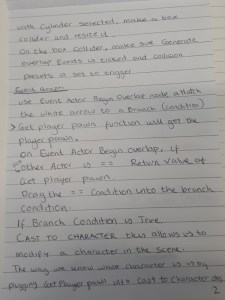 with cylinder selected, make a box
collider and resize it
On the box collider, make sure Generate
overlap Events is ticked and collision
presets is set to trigger
Event Actor
use Event Actor Begin Overlap node attach
the white arrow to a Branch (condition)
> Get player pawn function will get the
player pawn.
on Event Actor Begin overlap, if
other Actor is == Return value of
Get player pawn.
Drag the == Condition into the branch
Condition.
If Branch Condition is True
CAST TO CHARACTER this allows us to
modify a character in the scene.
The way we know what character is is by
plugging Get Player pawn into Cast to Character obj
2